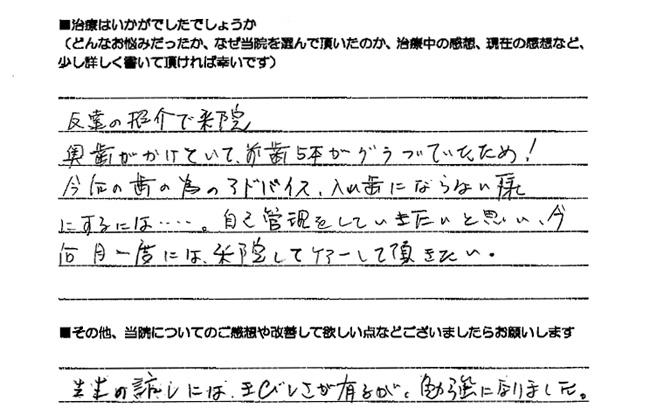 ■治療はいかがでしたでしょうか
（どんなお悩みだったか、なぜ当院を選んで頂いたのか、治療中の感想、現在の感想など、
少し詳しく書いて頂ければ幸いです）
友達の紹介で来院
奥歯がかけていて、前歯5本がグラついていたため!
今后の歯の為のアドバイス、入れ歯にならない様
にするには……。自己管理をしていきたいと思い、今
后月一度には、来院してケアーして頂きたい。
■その他、当院についてのご感想や改善して欲しい点などございましたらお願いします
先生の話しには、きびしさが有るが、勉強になりました。